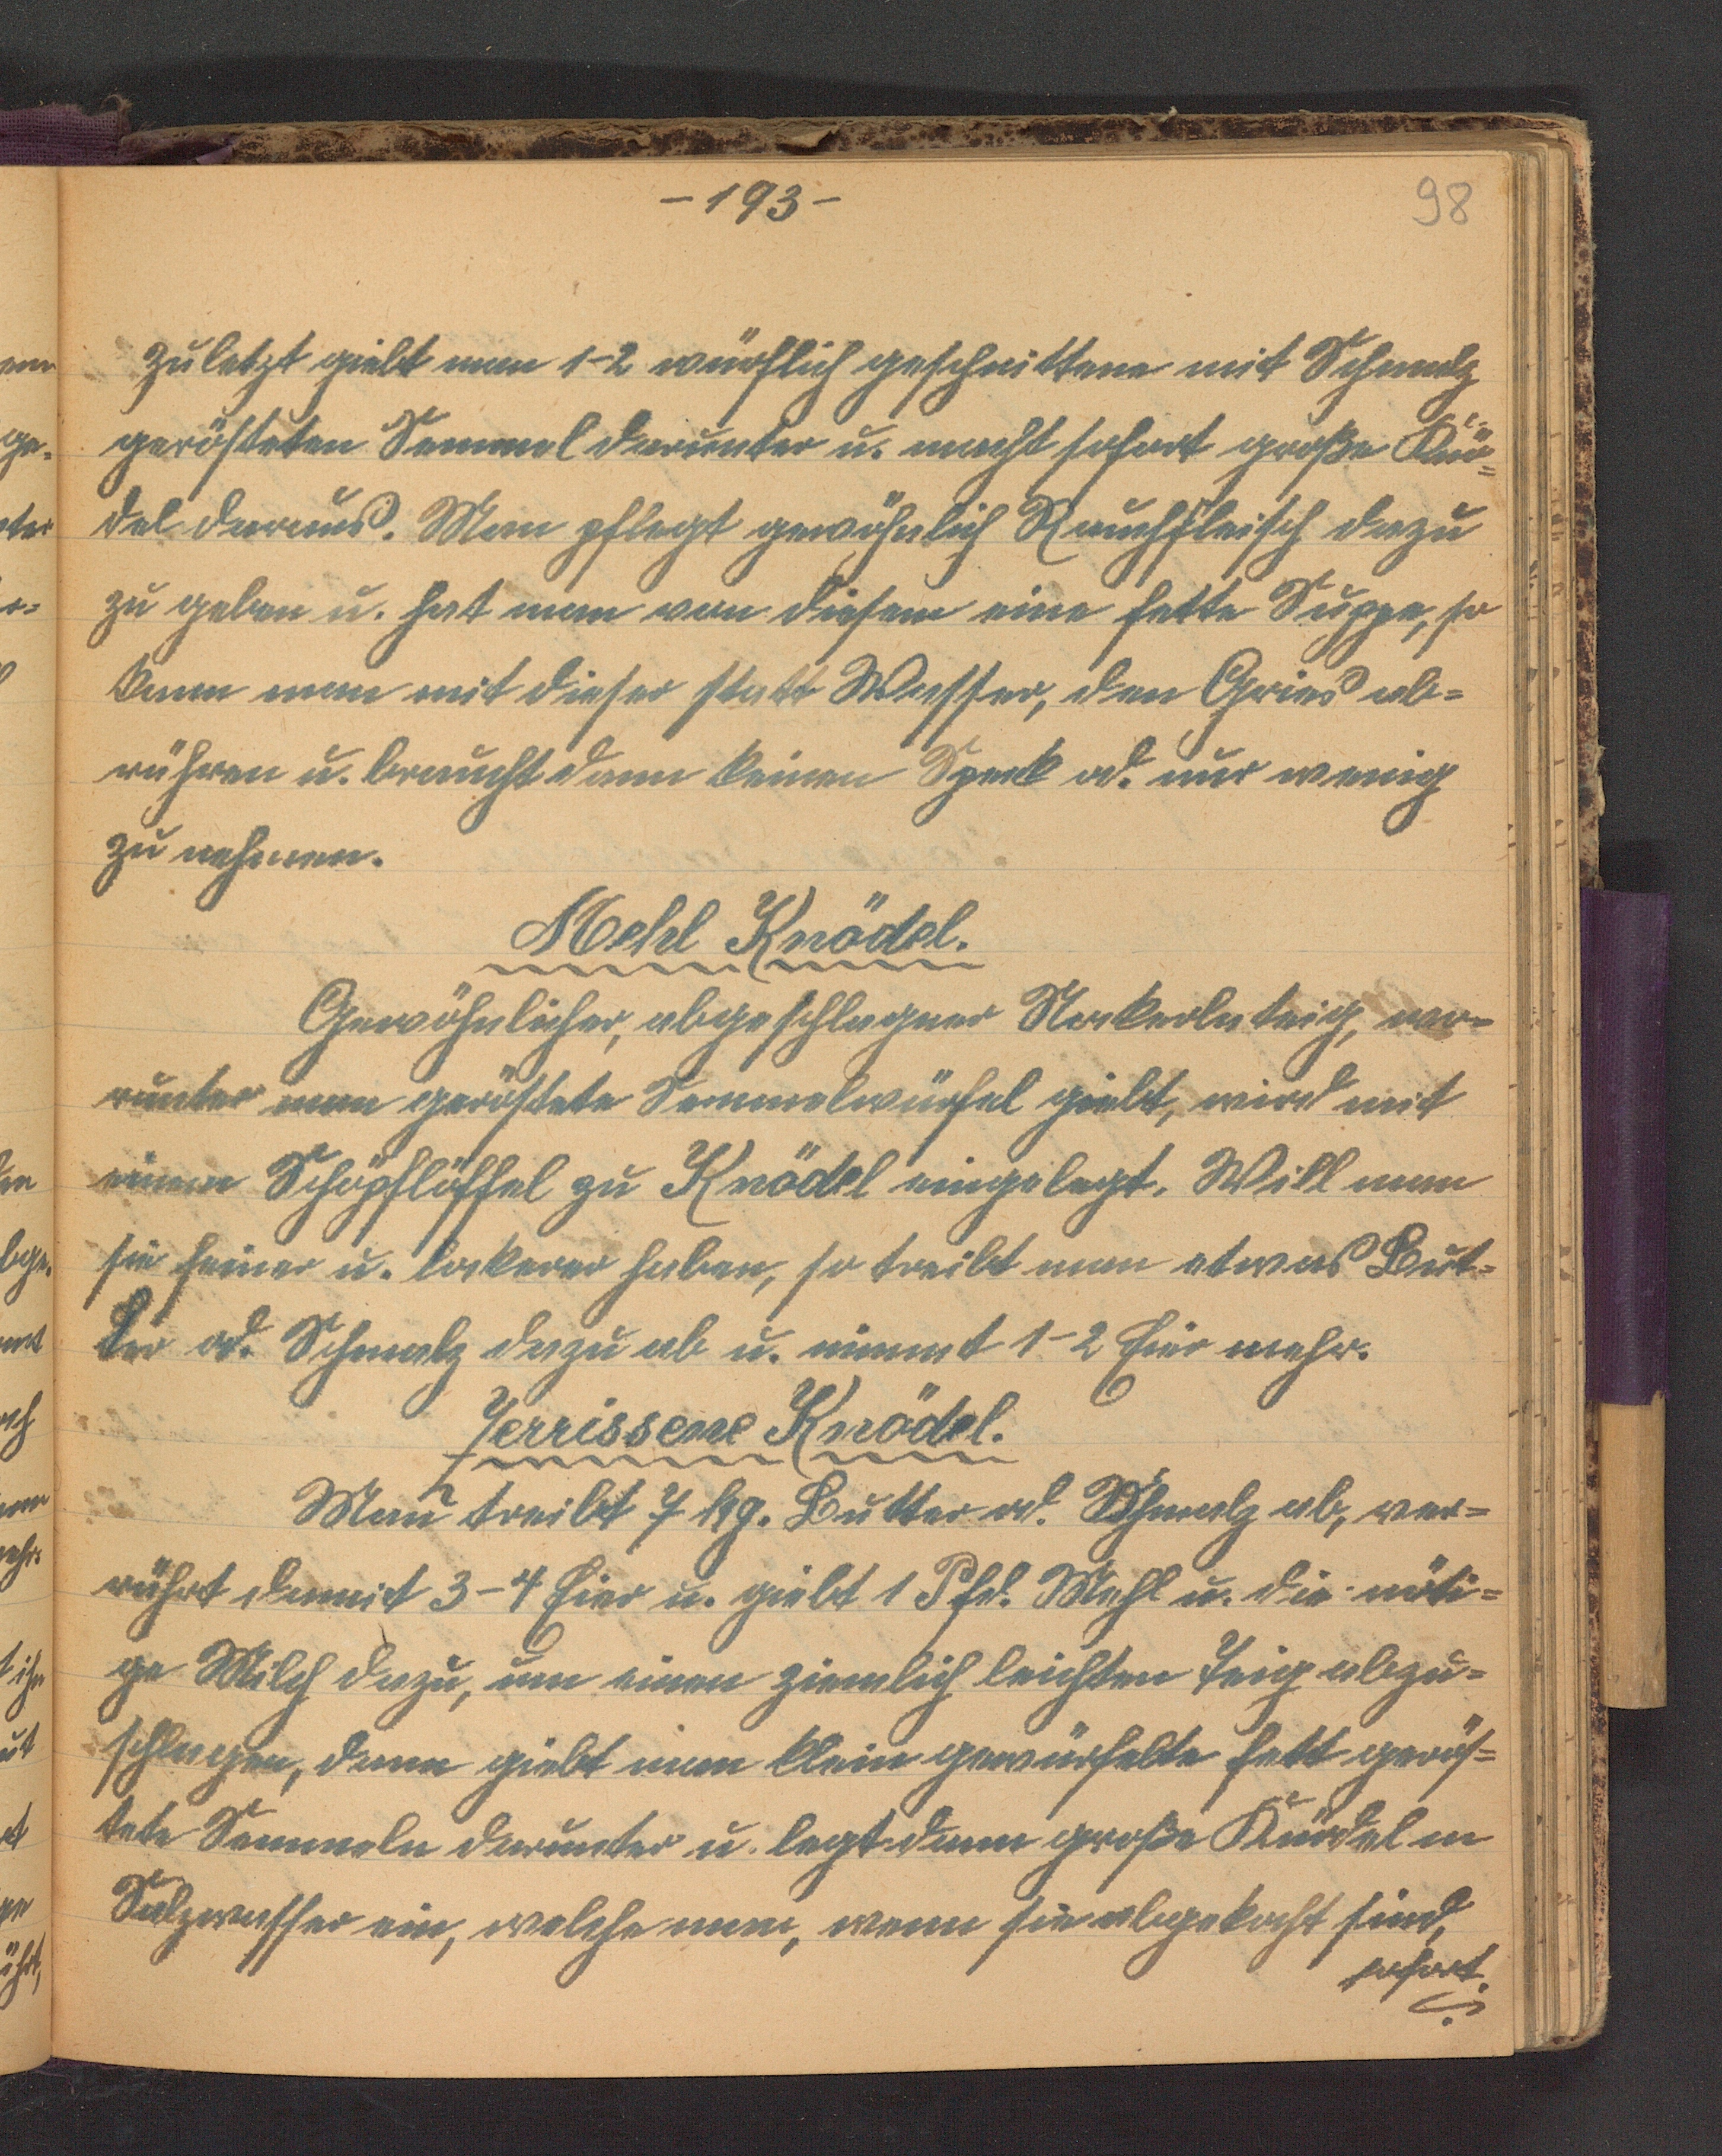 - 193 -
98
Zuletzt giebt man 1-2 würflich geschnittene mit Schmalz
gerösteten Semmel darunter u. macht sofort große Knö=
del daraus. Man pflegt gewöhnlich Rauchfleisch dazu
zu geben u. hat man von diesem eine fette Suppe, so
kann man mit dieser statt Wasser, den Gries ab=
rühren u. braucht dann keinen Speck od. nur wenig
zu nehmen.
Mehl Knödel.
Gewöhnlicher, abgeschlagner Nockerlnteig, wo=
runter man geröstete Semmelwürfel giebt, wird mit
einem Schöpflöffel zu Knödel eingelegt. Will man
sie feiner u. lockerer haben, so treibt man etwas But=
ter od. Schmalz dazu ab u. nimmt 1-2 Eier mehr.
Zerrissene Knödel.
Man treibt 7 kg. Butter od. Schmalz ab, ver=
rührt damit 3-4 Eier u. giebt 1 Pfd. Mehl u. die nöti=
ge Milch dazu, um einen ziemlich leichten Teig abzu=
schlagen, dann giebt man klein gewürfelte fett gerös=
tete Semmeln darunter u. legt dann große Knödel in
Salzwasser ein, welche man, wenn sie abgekocht sind,
sofort.